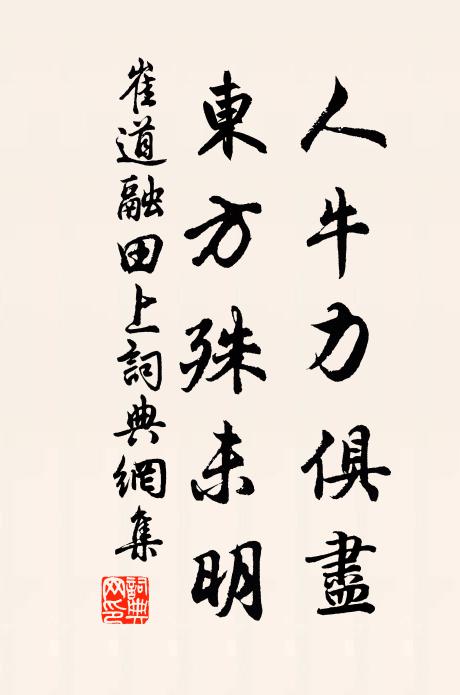 人牛力俱盡
東方殊未明
崔道融田上詞典網集
詞典网印